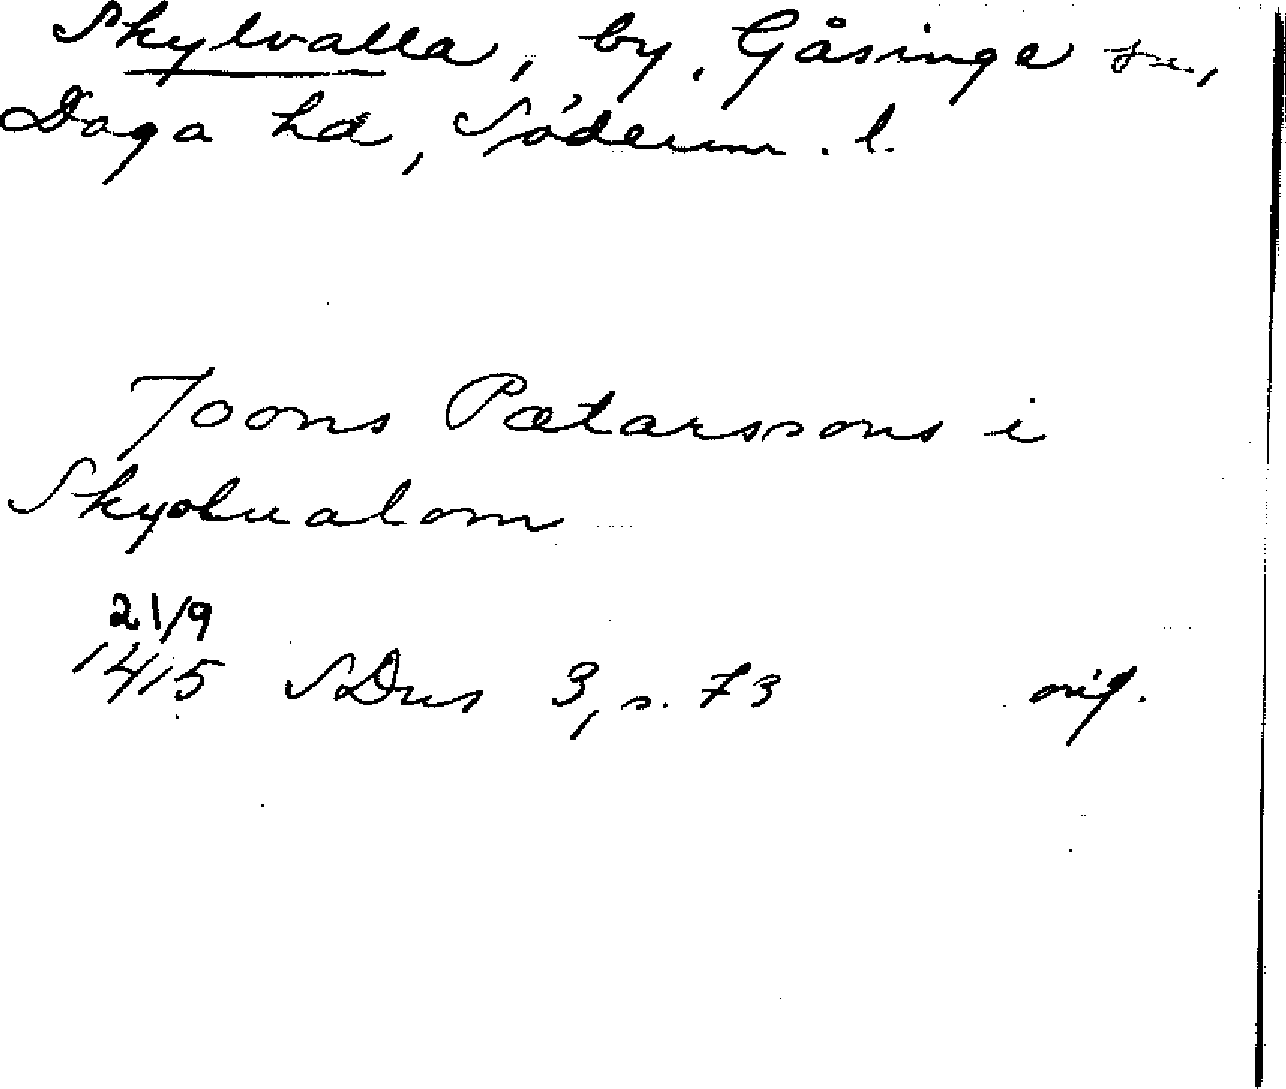 Skylvalla, by, Gåsinge sn,
Daga hd, Söderm. l.
Joons Pætarssons i
Skyølualom
21/9
1415 SDns 3, s. 73 orig.